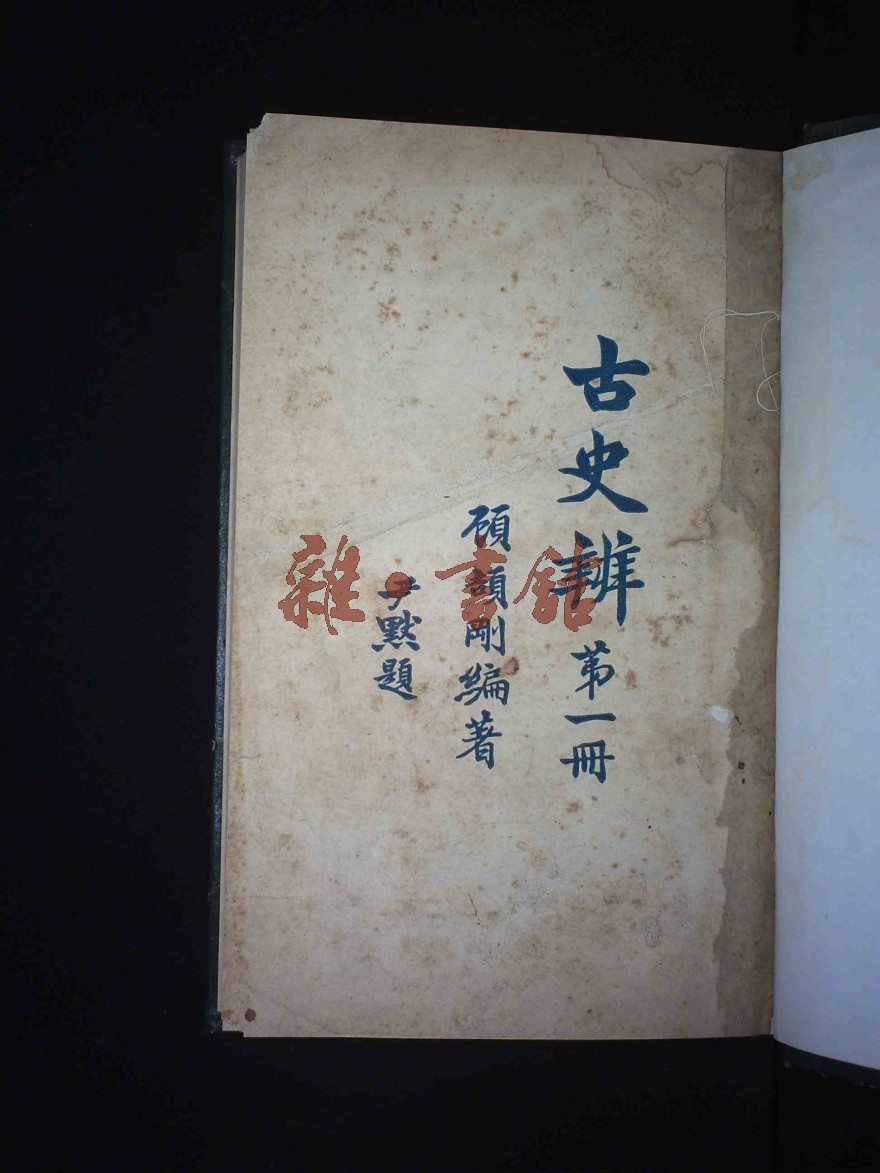 古史辨第一冊
顧頡剛編著
尹默題
雜·書館